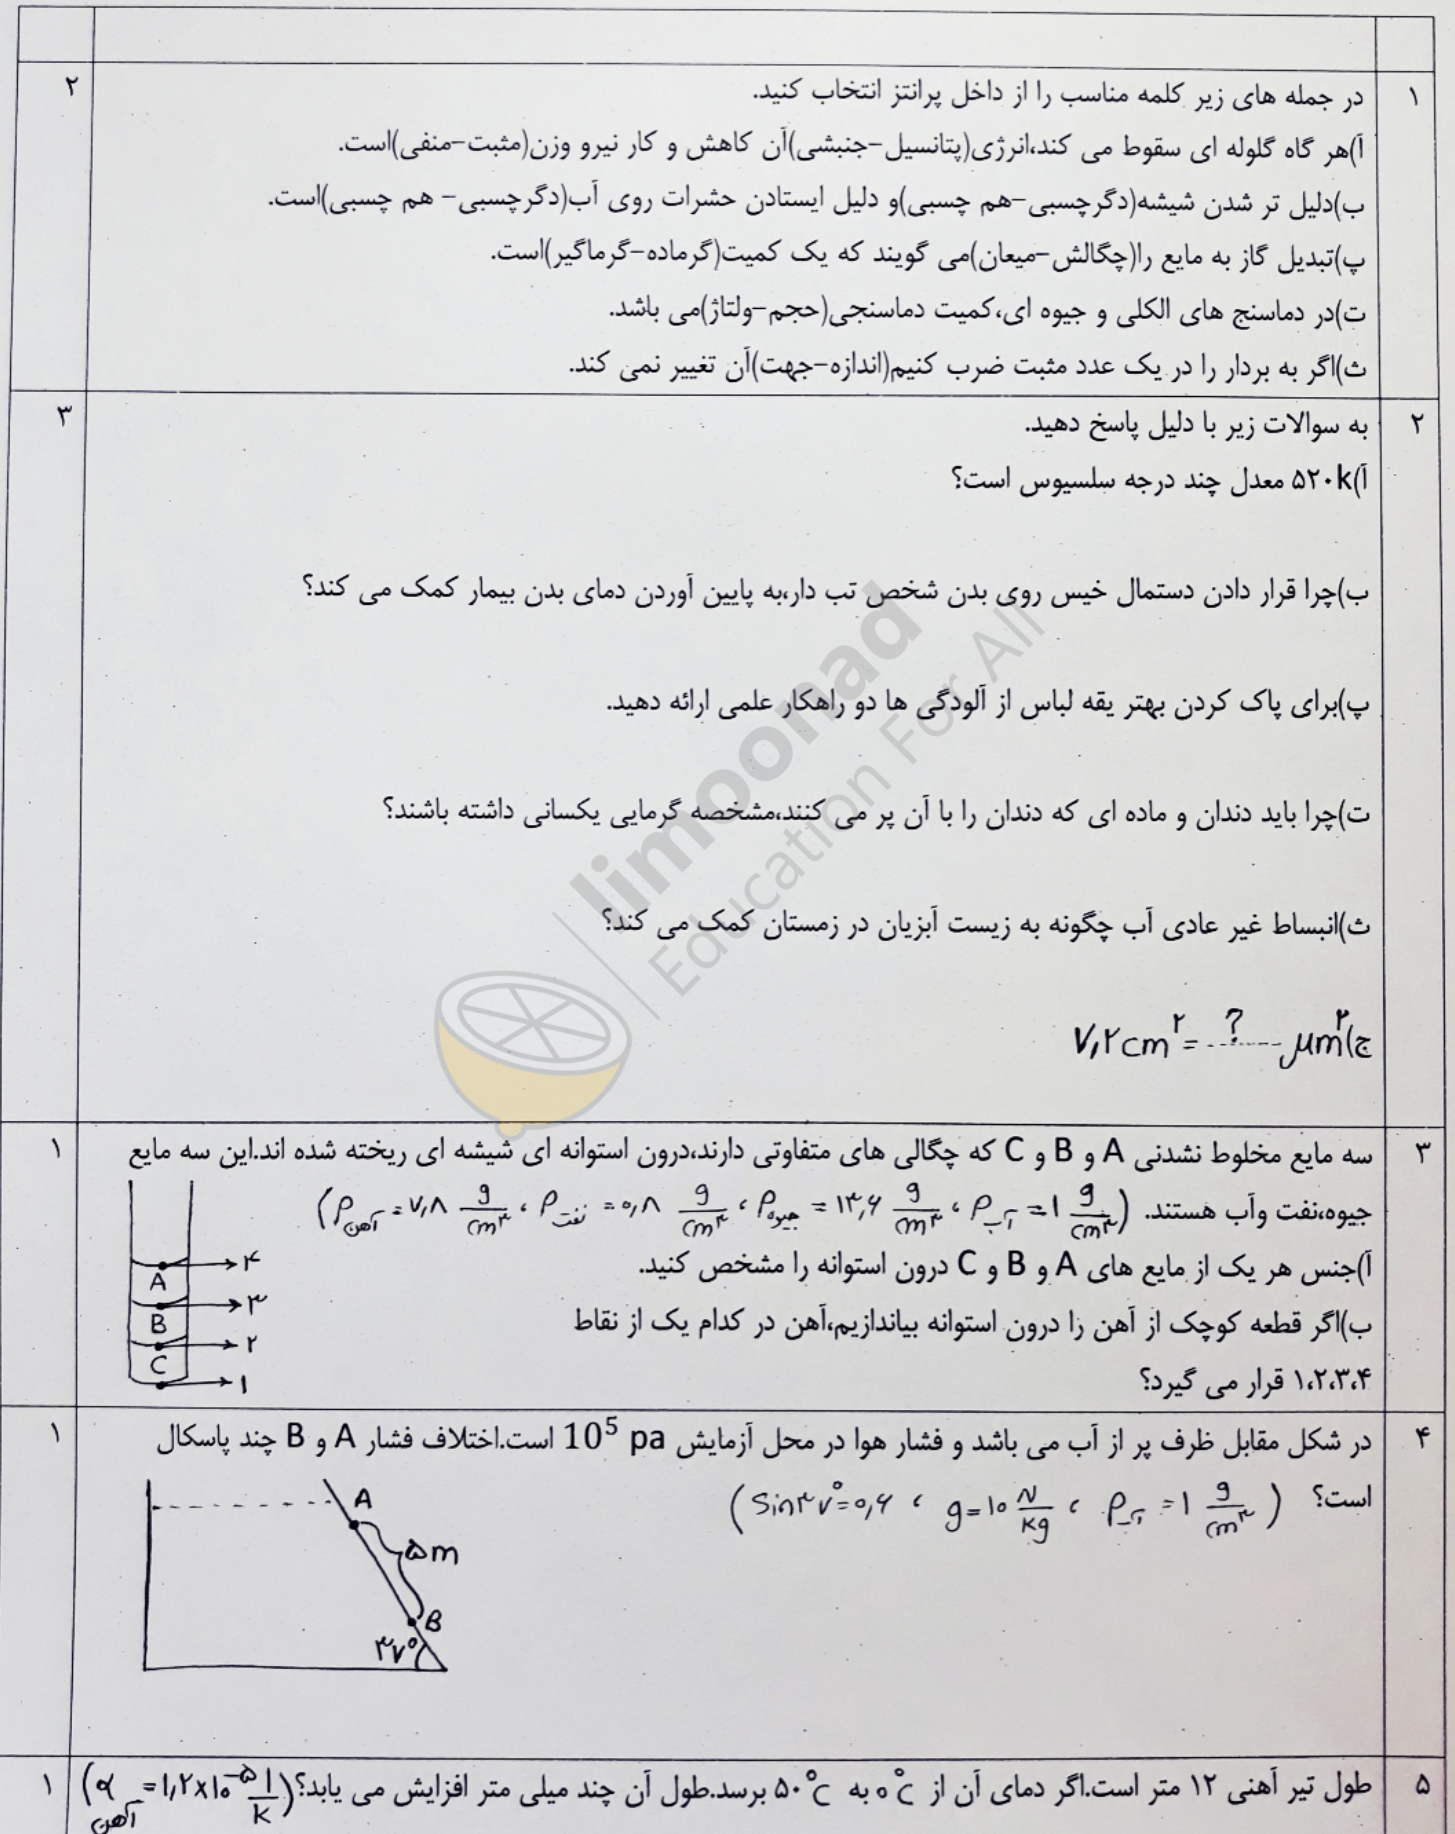 ۱ در جمله های زیر کلمه مناسب را از داخل پرانتز انتخاب کنید. ۲
آ)هر گاه گلوله ای سقوط می کند،انرژی(پتانسیل-جنبشی)آن کاهش و کار نیرو وزن(مثبت-منفی)است.
ب)دلیل تر شدن شیشه(دگرچسبی-هم چسبی)و دلیل ایستادن حشرات روی آب(دگرچسبی- هم چسبی)است.
پ)تبدیل گاز به مایع را(چگالش-میعان)می گویند که یک کمیت(گرماده-گرماگیر)است.
ت)در دماسنج های الکلی و جیوه ای،کمیت دماسنجی(حجم-ولتاژ)می باشد.
ث)اگر به بردار را در یک عدد مثبت ضرب کنیم(اندازه-جهت)آن تغییر نمی کند.
۲ به سوالات زیر با دلیل پاسخ دهید. ۳
آ)۵۲۰k معدل چند درجه سلسیوس است؟
ب)چرا قرار دادن دستمال خیس روی بدن شخص تب دار،به پایین آوردن دمای بدن بیمار کمک می کند؟
پ)برای پاک کردن بهتر یقه لباس از آلودگی ها دو راهکار علمی ارائه دهید.
ت)چرا باید دندان و ماده ای که دندان را با آن پر می کنند،مشخصه گرمایی یکسانی داشته باشند؟
ث)انبساط غیر عادی آب چگونه به زیست آبزیان در زمستان کمک می کند؟
ج) ۷,۲ cm² = ---?--- μm²
limoonad
Education For All
۳ سه مایع مخلوط نشدنی A و B و C که چگالی های متفاوتی دارند،درون استوانه ای شیشه ای ریخته شده اند.این سه مایع ۱
جیوه،نفت وآب هستند. (ρآهن = ۷,۸ g/cm³ ، ρنفت = ۰,۸ g/cm³ ، ρجیوه = ۱۳,۶ g/cm³ ، ρآب = ۱ g/cm³)
آ)جنس هر یک از مایع های A و B و C درون استوانه را مشخص کنید.
ب)اگر قطعه کوچک از آهن را درون استوانه بیاندازیم،آهن در کدام یک از نقاط
۱،۲،۳،۴ قرار می گیرد؟
۴
A
۳
B
۲
C
۱
۴ در شکل مقابل ظرف پر از آب می باشد و فشار هوا در محل آزمایش 10⁵ pa است.اختلاف فشار A و B چند پاسکال ۱
است؟ (Sin۳۷° = ۰,۶ ، g = ۱۰ N/kg ، ρآب = ۱ g/cm³)
A
۵m
B
۳۷°
۵ طول تیر آهنی ۱۲ متر است.اگر دمای آن از ۰°C به ۵۰°C برسد.طول آن چند میلی متر افزایش می یابد؟ (αآهن = ۱,۲×۱۰⁻⁵ ۱/K) ۱